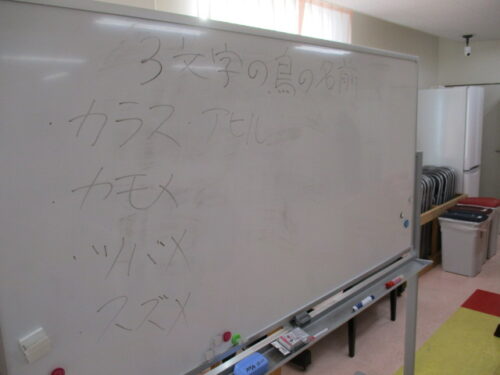 3文字の鳥の名前
・カラス・アヒル
・カモメ
・ツバメ
・スズメ